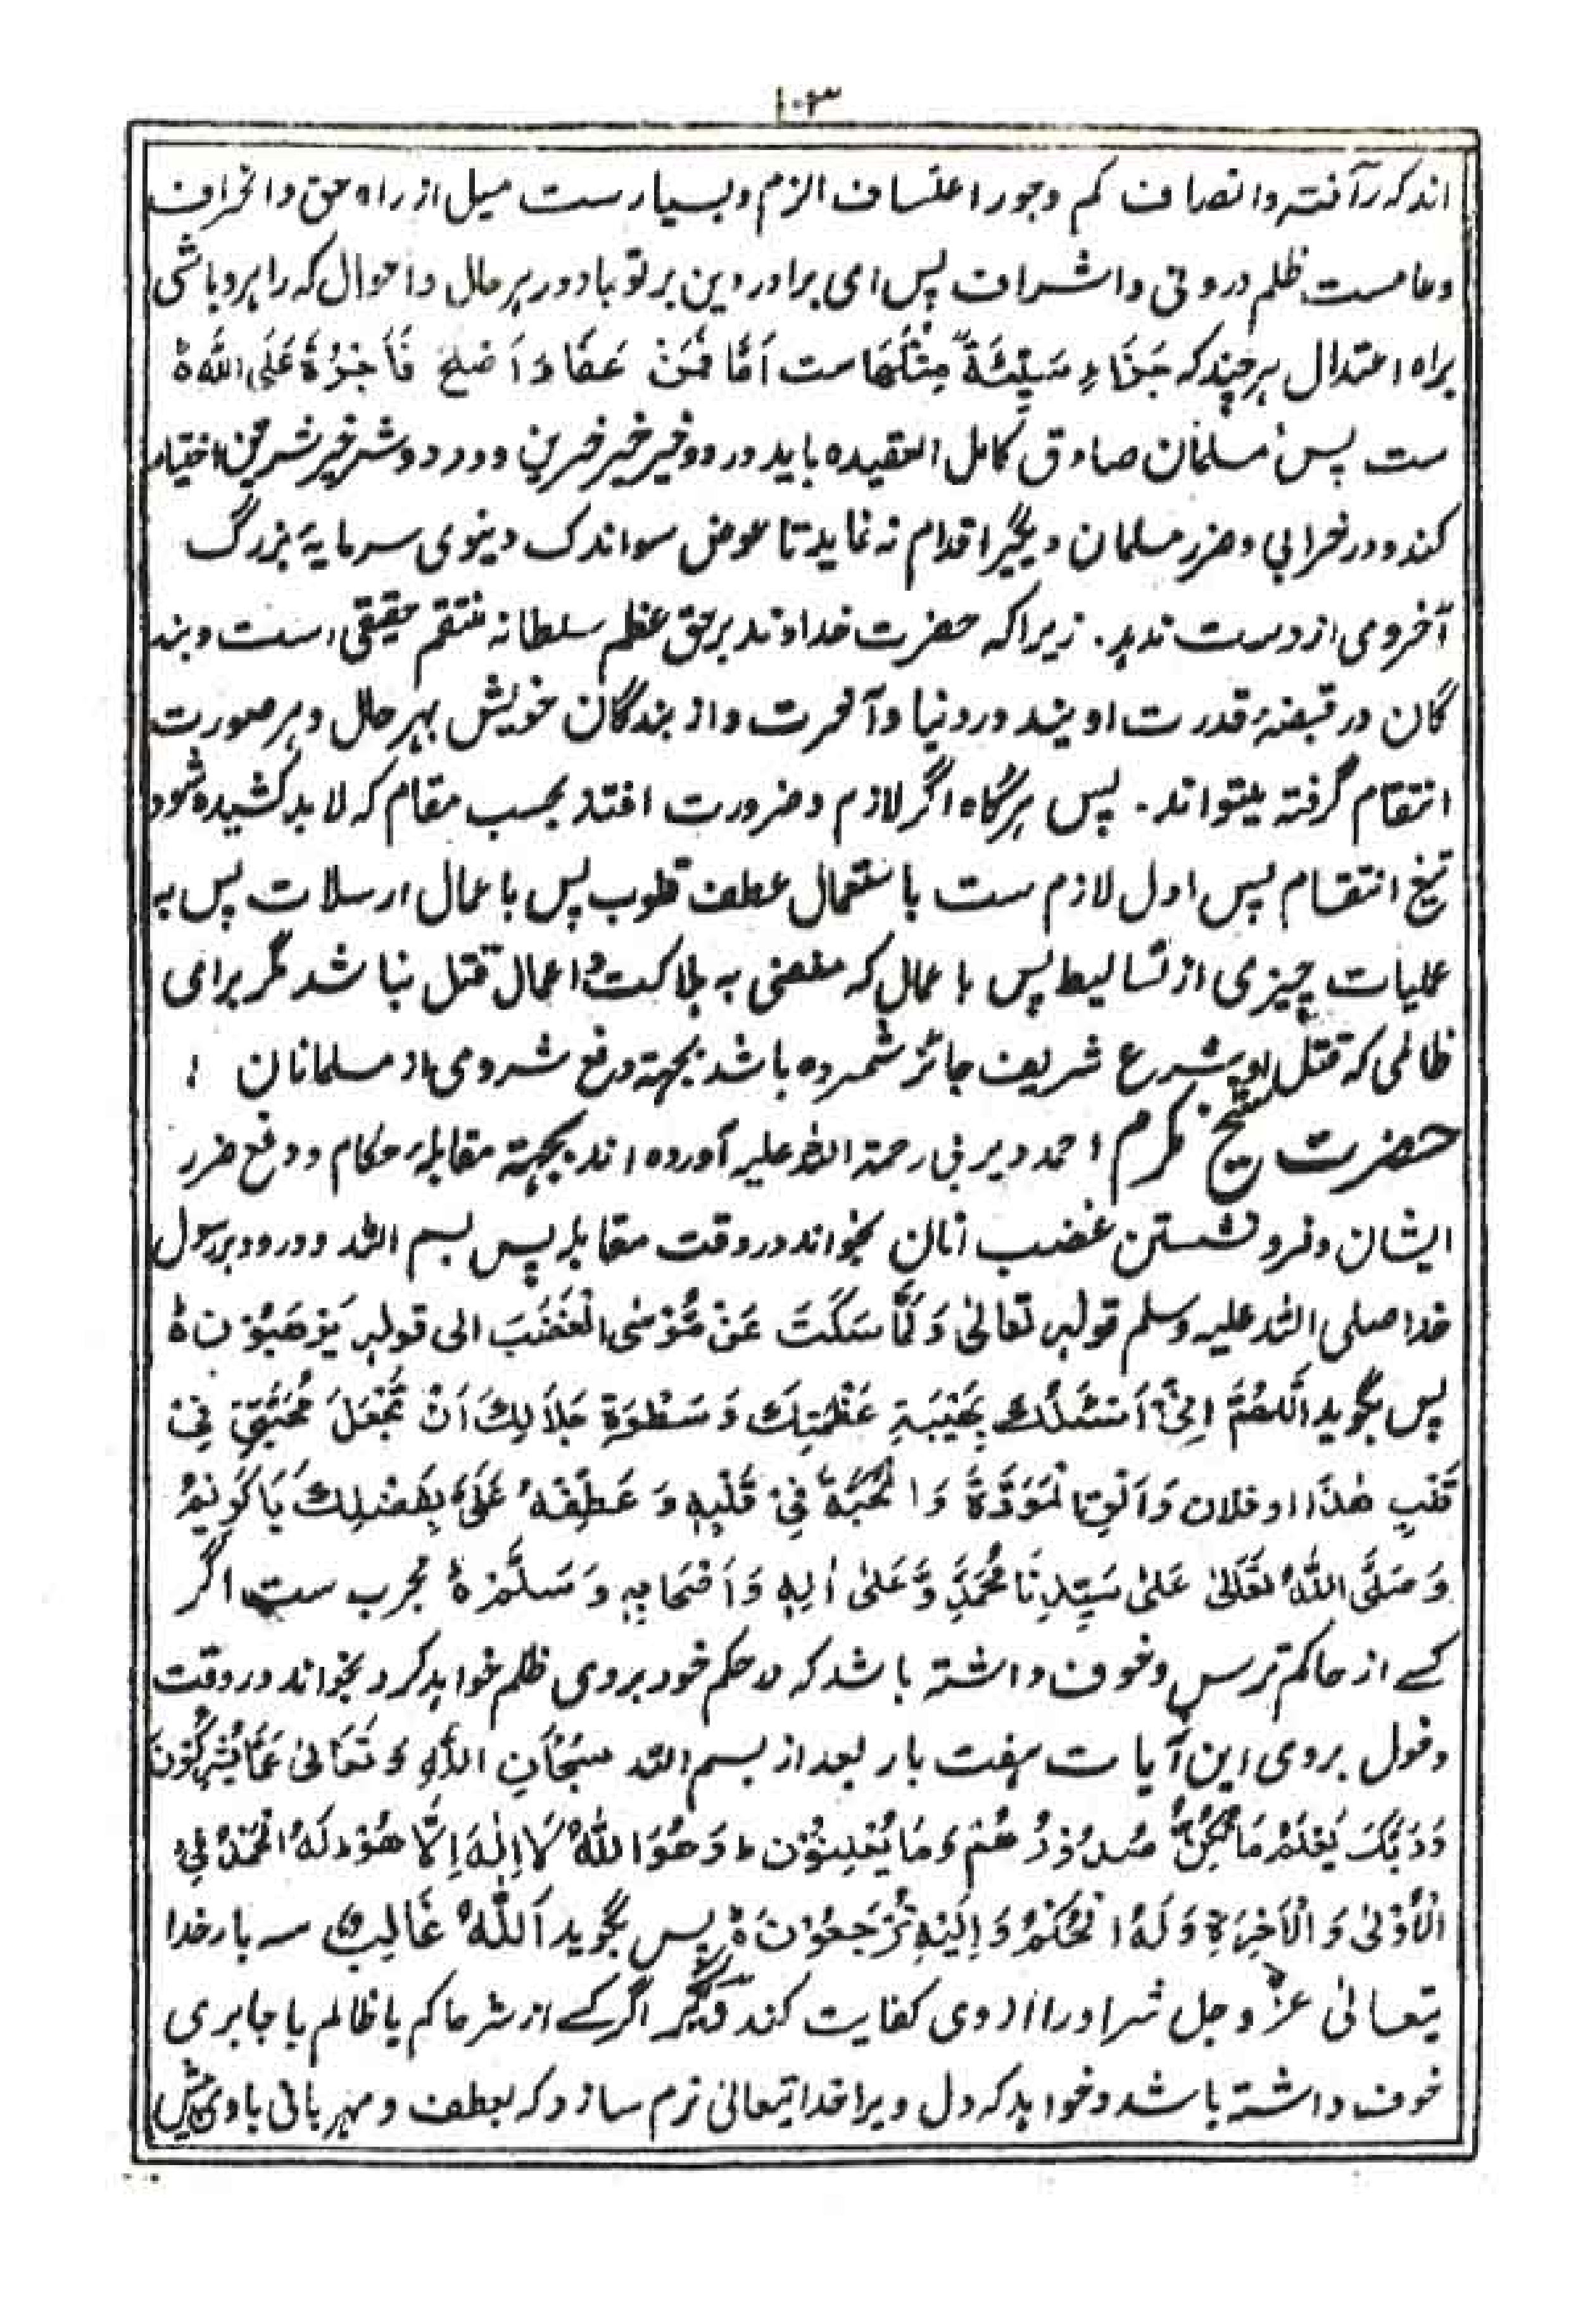 ۱۰۳
اندکه رآفته وانصاف کم وجور اعتساف الزم وبسیارست میل از راه حق وانحراف
وعامست ظلم درونی واشراف پس ای برادر دین بر تو باد در هر حال واحوال که راهرو باشی
براه اعتدال هرچند که جَزَاءِ سَیِّئَةٌ مِثْلُهَا ست اَمَّا فَمَنْ عَفَا وَ اَصْلَحَ فَاَجْرُهٗ عَلَی اللّٰهِ ہ
ست پس مسلمان صادق کامل العقیده باید در دو خیر خیر خیرین ودر دو شر غیر شرین اختیار
کند ودر خرابی وضرر مسلمان دیگر اقدام نه نماید تا عوض سواندک دینوی سرمایۂ بزرگ
آخروی از دست ندهد۔ زیراکه حضرت خداوند برحق عظم سلطانه منتقم حقیقی است وبند
گان در قبضۂ قدرت اویند در دنیا وآخرت واز بندگان خویش بهر حال وهر صورت
انتقام گرفته میتواند۔ پس هرگاه اگر لازم وضرورت افتد بحسب مقام که لابد کشیده شود
تیغ انتقام پس اول لازم ست باستعمال عطف قلوب پس باعمال ارسلات پس به
عملیات چیزی از تسالیط پس باعمال که مفضی به هلاکت واعمال قتل نباشد مگر برای
ظالمی که قتل او بشرع شریف جائز شمرده باشد بجهته دفع شر وی از مسلمانان :
حضرت شیخ مکرم احمد دیربی رحمة الله علیه آورده اند بجهته مقابلۂ حکام ودفع ضرر
ایشان وفرو نشستن غضب آنان بخواند در وقت مقابله پس بسم الله ودرود بر رسول
خدا صلی الله علیه وسلم قوله تعالیٰ وَلَمَّا سَکَتَ عَنْ مُّوْسَی الْغَضَبَ الی قوله یَرْهَبُوْنَ ہ
پس بگوید اَللّٰهُمَّ اِنِّیْ اَسْئَلُكَ بِهَیْبَةِ عَظْمَتِكَ وَ سَطْوَةِ جَلَالِكَ اَنْ تَجْعَلَ مُحَبَّتِیْ فِیْ
قَلْبِ هٰذَا او فلان وَاَلْقِ الْمَوَدَّةَ وَ الْمُحَبَّةَ فِیْ قَلْبِهٖ وَ عَطِّفْهُ عَلَیَّ بِفَضْلِكَ یَا کَرِیْمُ
وَ صَلَّی اللّٰهُ تَعَالیٰ عَلیٰ سَیِّدِنَا مُحَمَّدٍ وَّ عَلیٰ اٰلِهٖ وَ اَصْحَابِهٖ وَ سَلَّمْ ہ مجرب ست اگر
کسے از حاکم ترس وخوف داشته باشد که در حکم خود بروی ظلم خواهد کرد بخواند در وقت
دخول بروی این آیات هفت بار بعد از بسم الله سُبْحَانَ اللّٰهِ وَ تَعَالیٰ عَمَّا یُشْرِکُوْنَ
وَرَبُّكَ یَعْلَمُ مَا تُکِنُّ صُدُوْرُهُمْ وَمَا یُعْلِنُوْنَ ط وَ هُوَ اللّٰهُ لَا اِلٰهَ اِلَّا هُوَ ط لَهُ الْحَمْدُ فِی
الْاُوْلیٰ وَ الْاٰخِرَةِ وَ لَهُ الْحُکْمُ وَ اِلَیْهِ تُرْجَعُوْنَ ہ پس بگوید اَللّٰهُ غَالِبٌ سه بار خدا
یتعالیٰ عزّ وجل شر اورا از وی کفایت کند دیگر اگر کسے از شر حاکم یا ظالم یا جابری
خوف داشته باشد وخواهد که دل ویرا خدایتعالیٰ نرم سازد که بعطف ومهربانی با وی پیش